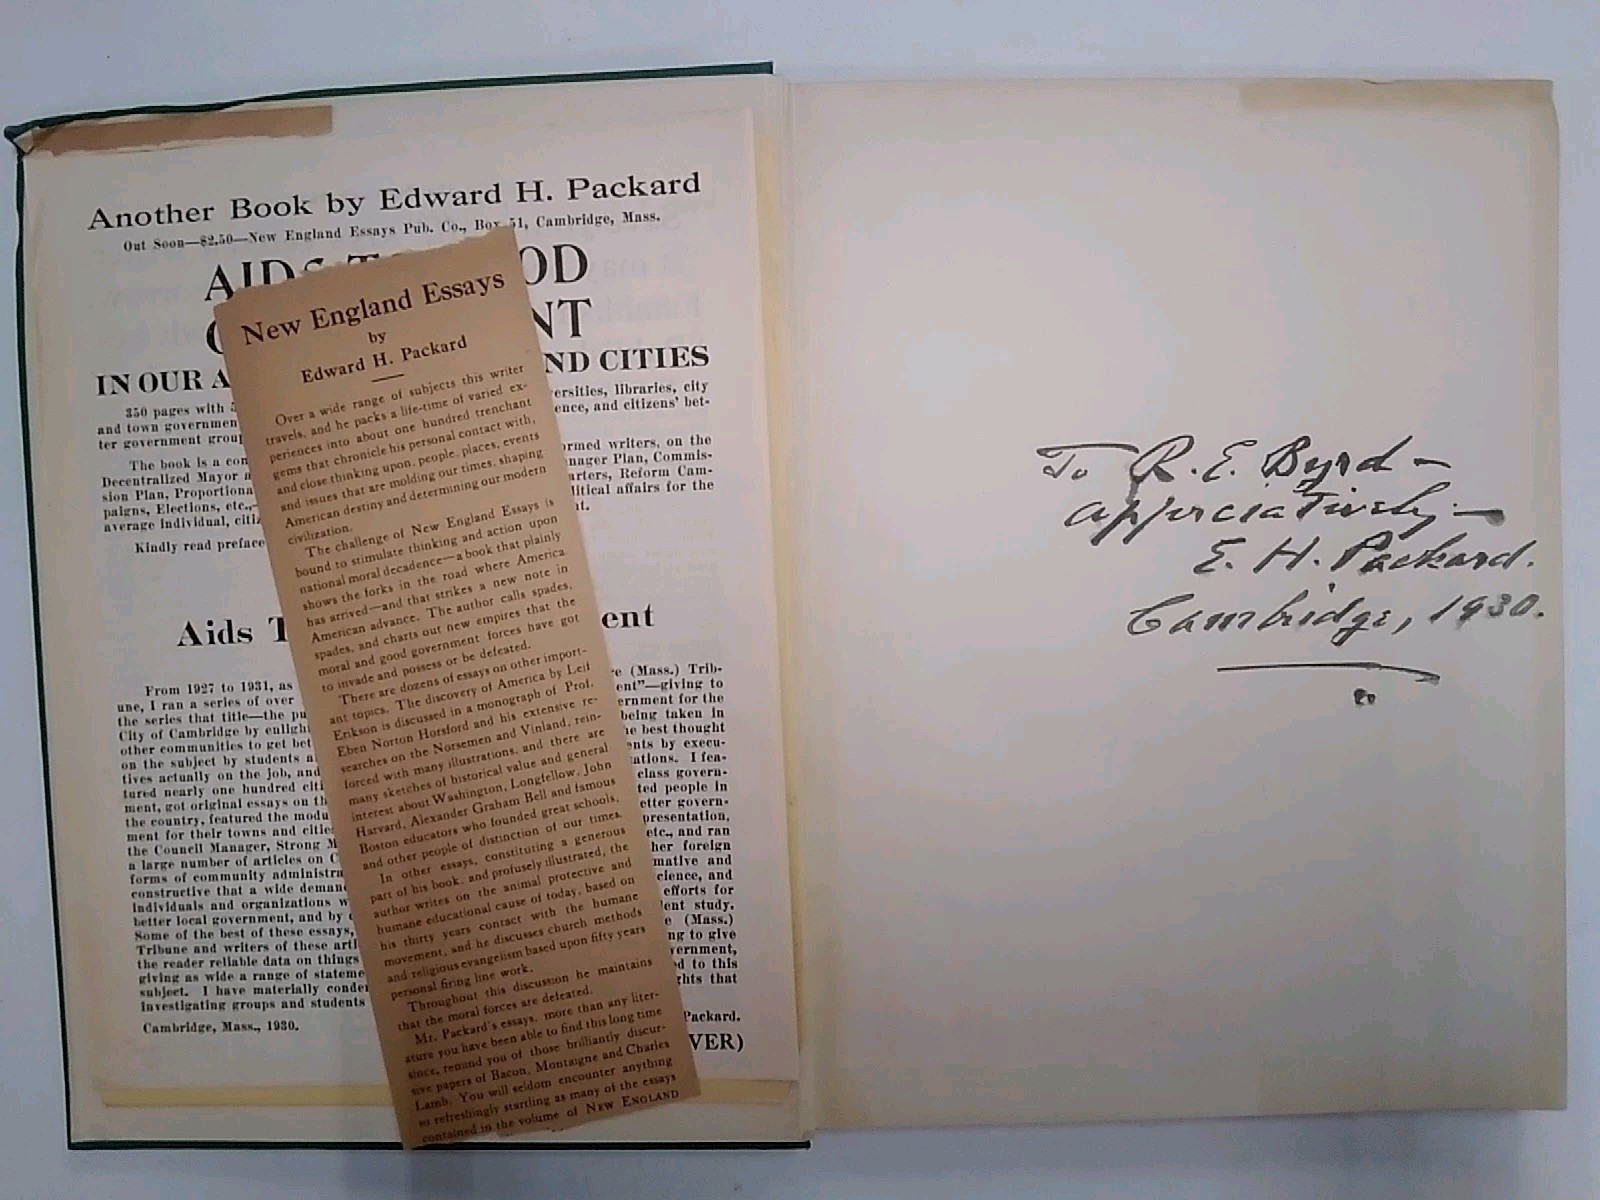 Another Book by Edward H. Packard
Out Soon—$2.50—New England Essays Pub. Co., Box 51, Cambridge, Mass.
AIDS TO OOD
NT
IN OUR A ND CITIES
350 pages with ersities, libraries, city
and town governmen ence, and citizens' bet-
ter government grou
The book is a con ormed writers, on the
Decentralized Mayor a nager Plan, Commis-
sion Plan, Proportiona arters, Reform Cam-
paigns, Elections, etc., litical affairs for the
average individual, citi nt.
Kindly read preface
Aids T ent
From 1927 to 1931, as re (Mass.) Trib-
une, I ran a series of over ent"—giving to
the series that title—the pu ernment for the
City of Cambridge by enligh being taken in
other communities to get bet e best thought
on the subject by students a nts by execu-
tives actually on the job, and ations. I fea-
tured nearly one hundred citi class govern-
ment, got original essays on th ted people in
the country, featured the modu etter govern-
ment for their towns and citie presentation,
the Council Manager, Strong M etc., and ran
a large number of articles on C her foreign
forms of community administra mative and
constructive that a wide deman cience, and
individuals and organizations w efforts for
better local government, and by c ent study.
Some of the best of these essays, e (Mass.)
Tribune and writers of these arti ng to give
the reader reliable data on things vernment,
giving as wide a range of stateme d to this
subject. I have materially conde ghts that
investigating groups and students
Packard.
Cambridge, Mass., 1930.
VER)
New England Essays
by
Edward H. Packard
Over a wide range of subjects this writer
travels, and he packs a life-time of varied ex-
periences into about one hundred trenchant
gems that chronicle his personal contact with,
and close thinking upon, people, places, events
and issues that are molding our times, shaping
American destiny and determining our modern
civilization.
The challenge of New England Essays is
bound to stimulate thinking and action upon
national moral decadence—a book that plainly
shows the forks in the road where America
has arrived—and that strikes a new note in
American advance. The author calls spades,
spades, and charts out new empires that the
moral and good government forces have got
to invade and possess or be defeated.
There are dozens of essays on other import-
ant topics. The discovery of America by Leif
Erikson is discussed in a monograph of Prof.
Eben Norton Horsford and his extensive re-
searches on the Norsemen and Vinland, rein-
forced with many illustrations, and there are
many sketches of historical value and general
interest about Washington, Longfellow, John
Harvard, Alexander Graham Bell and famous
Boston educators who founded great schools,
and other people of distinction of our times.
In other essays, constituting a generous
part of his book, and profusely illustrated, the
author writes on the animal protective and
humane educational cause of today, based on
his thirty years contact with the humane
movement, and he discusses church methods
and religious evangelism based upon fifty years
personal firing line work.
Throughout this discussion he maintains
that the moral forces are defeated.
Mr. Packard's essays, more than any liter-
ature you have been able to find this long time
since, remind you of those brilliantly discur-
sive papers of Bacon, Montaigne and Charles
Lamb. You will seldom encounter anything
so refreshingly startling as many of the essays
contained in the volume of NEW ENGLAND
To R. E. Byrd—
appreciatively—
E. H. Packard.
Cambridge, 1930.